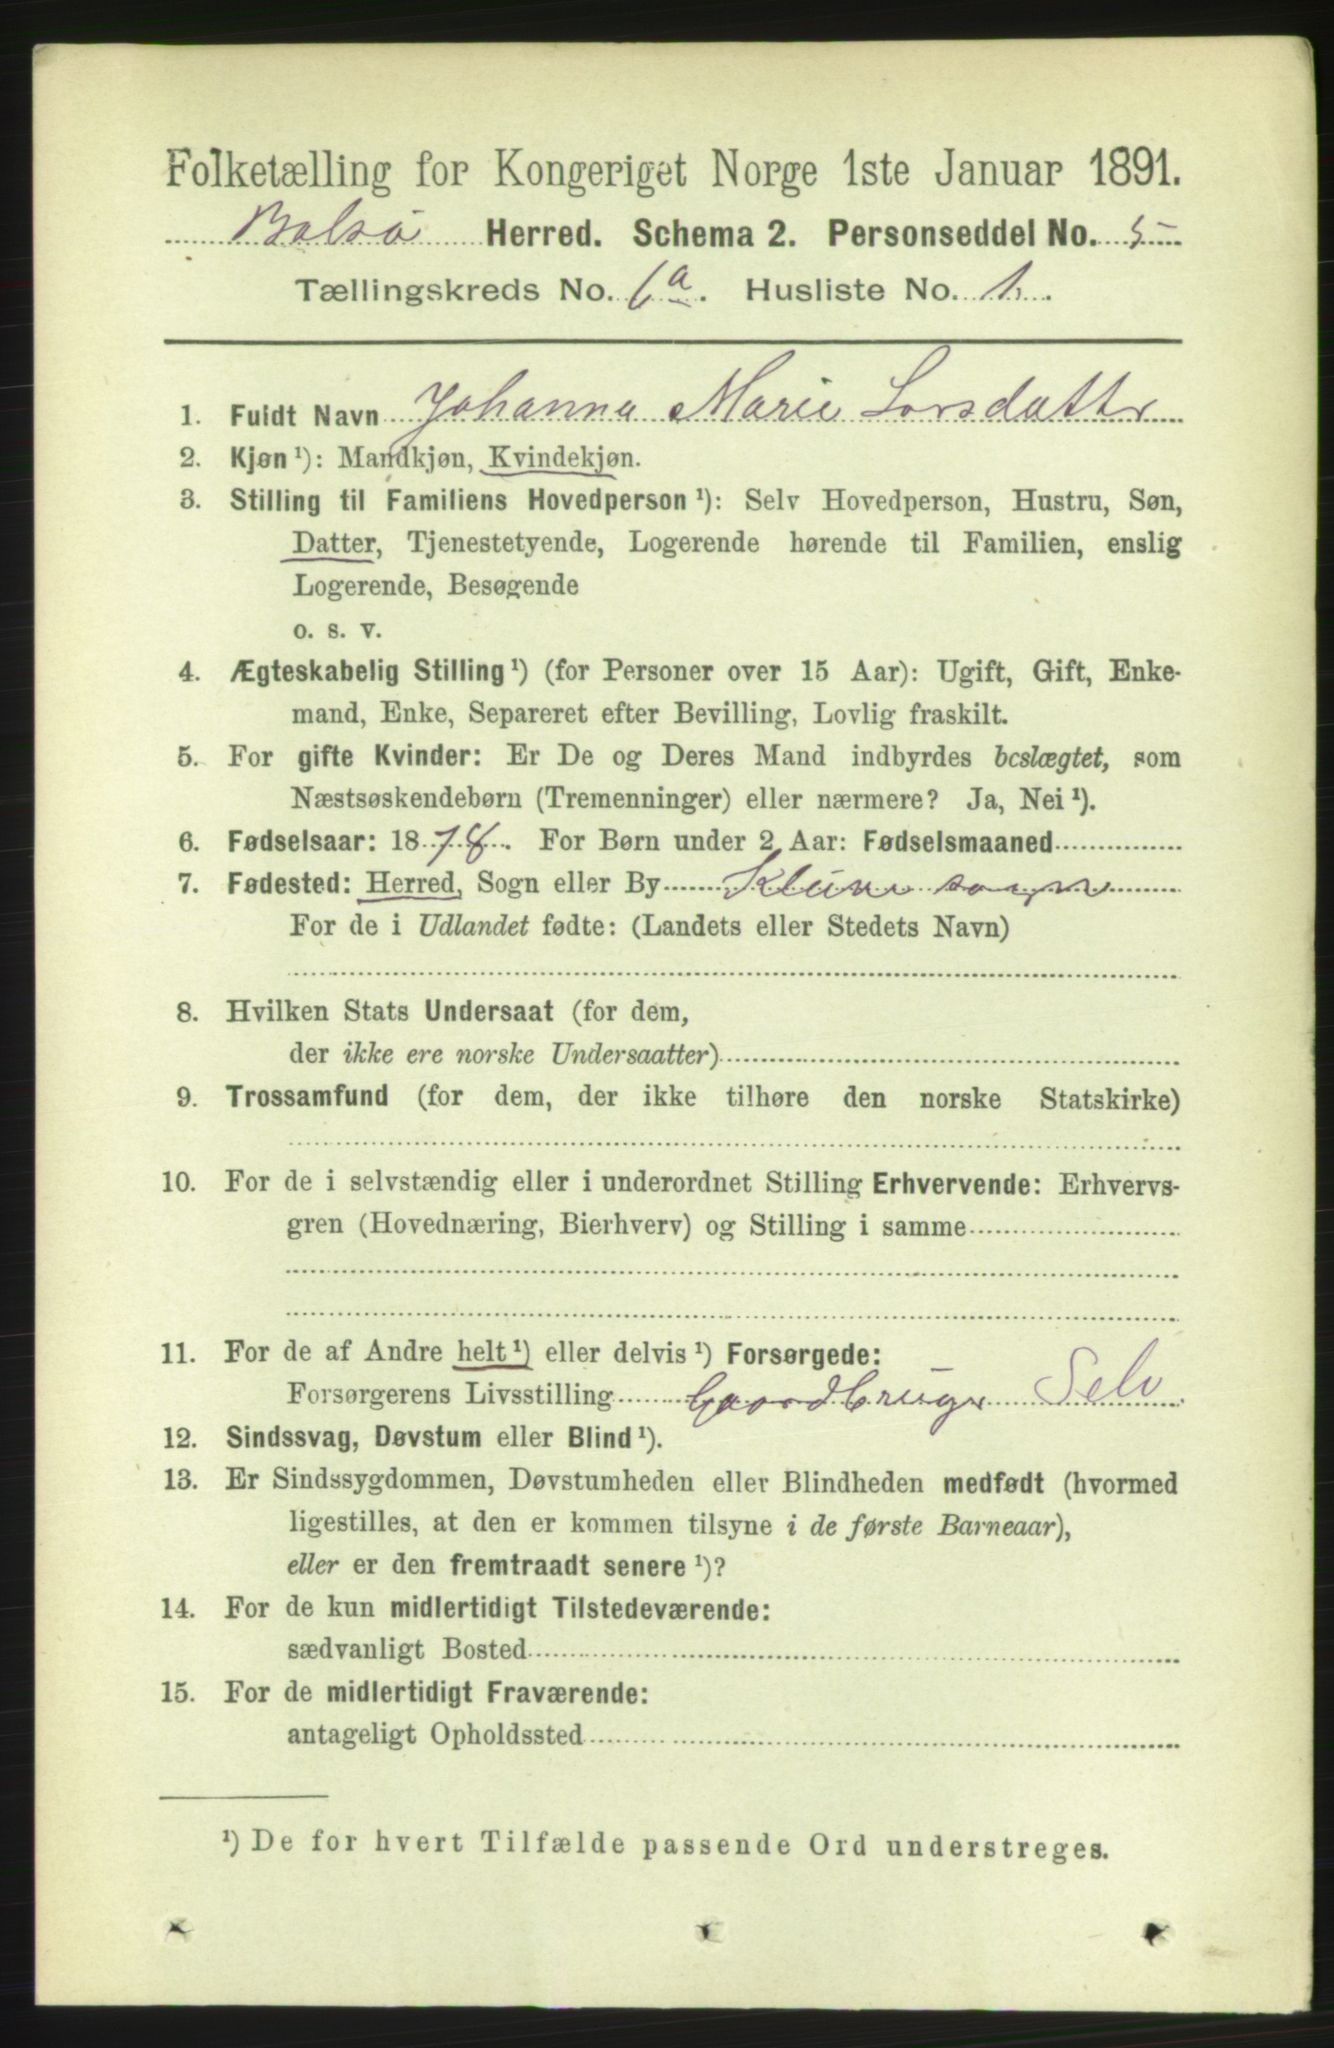 Folketælling for Kongeriget Norge 1ste Januar 1891.
Bolsø Herred. Schema 2. Personseddel No. 5
Tællingskreds No. 6a. Husliste No. 1.
1. Fuldt Navn Johanna Marie Larsdattr
2. Kjøn ¹): Mandkjøn, Kvindekjøn.
3. Stilling til Familiens Hovedperson ¹): Selv Hovedperson, Hustru, Søn,
Datter, Tjenestetyende, Logerende hørende til Familien, enslig
Logerende, Besøgende
o. s. v.
4. Ægteskabelig Stilling ¹) (for Personer over 15 Aar): Ugift, Gift, Enke-
mand, Enke, Separeret efter Bevilling, Lovlig fraskilt.
5. For gifte Kvinder: Er De og Deres Mand indbyrdes beslægtet, som
Næstsøskendebørn (Tremenninger) eller nærmere? Ja, Nei ¹).
6. Fødselsaar: 1878. For Børn under 2 Aar: Fødselsmaaned
7. Fødested: Herred, Sogn eller By Kleive sogn
For de i Udlandet fødte: (Landets eller Stedets Navn)
8. Hvilken Stats Undersaat (for dem,
der ikke ere norske Undersaatter)
9. Trossamfund (for dem, der ikke tilhøre den norske Statskirke)
10. For de i selvstændig eller i underordnet Stilling Erhvervende: Erhvervs-
gren (Hovednæring, Bierhverv) og Stilling i samme
11. For de af Andre helt ¹) eller delvis ¹) Forsørgede:
Forsørgerens Livsstilling Gaardbruger Selv
12. Sindssvag, Døvstum eller Blind ¹).
13. Er Sindssygdommen, Døvstumheden eller Blindheden medfødt (hvormed
ligestilles, at den er kommen tilsyne i de første Barneaar),
eller er den fremtraadt senere ¹)?
14. For de kun midlertidigt Tilstedeværende:
sædvanligt Bosted
15. For de midlertidigt Fraværende:
antageligt Opholdssted
¹) De for hvert Tilfælde passende Ord understreges.